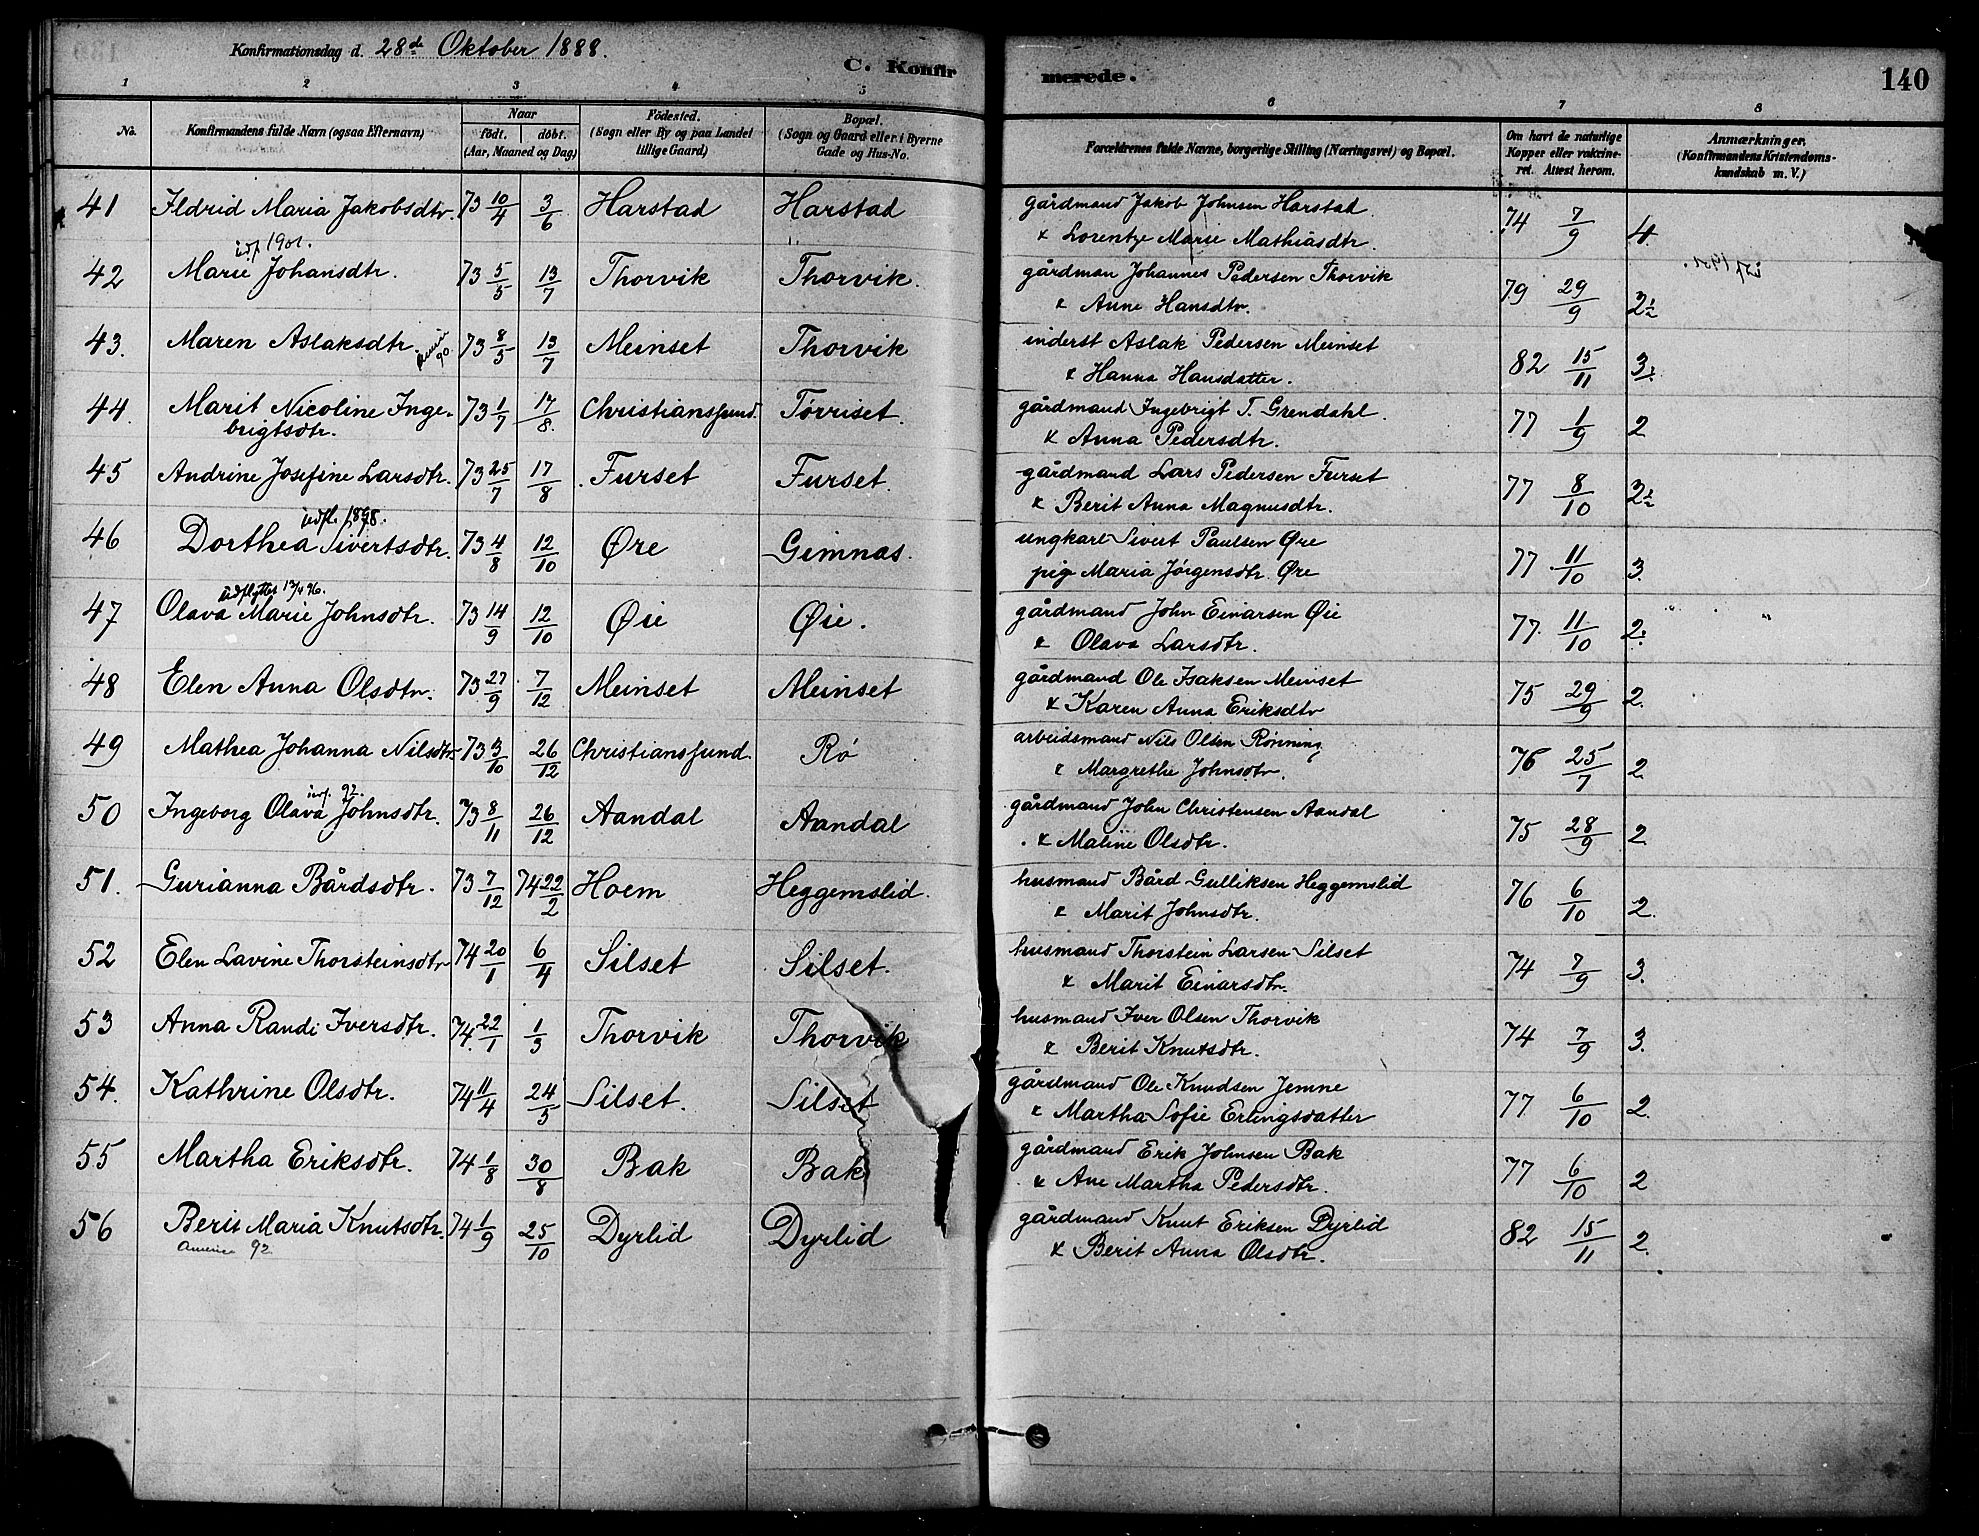 Konfirmationsdag d. 28de Oktober 1888.
C. Konfirmerede.
140
1 2 3 4 5 6 7 8
No.
Konfirmandens fulde Navn (ogsaa Efternavn)
Naar
födt. döbt.
(Aar, Maaned og Dag)
Födested.
(Sogn eller By og paa Landet
tillige Gaard)
Bopæl.
(Sogn og Gaard eller i Byerne
Gade og Hus-No.
Forældrenes fulde Navne, borgerlige Stilling (Næringsvei) og Bopæl.
Om havt de naturlige
Kopper eller vakcine-
ret. Attest herom.
Anmærkninger.
(Konfirmandens Kristendoms-
kundskab m. V.)
41 Ildrid Maria Jakobsdtr. 73 10/4 3/6 Harstad Harstad gårdmand Jakob Johnsen Harstad 74 7/9 4
& Lorentze Marie Mathiasdtr.
udf 1901.
42 Marie Johansdtr. 73 5/5 13/7 Thorvik Thorvik. gårdman Johannes Pedersen Thorvik 79 29/9 2½ udf 1901.
& Anne Hansdtr.
43. Maren Aslaksdtr. 73 8/5 13/7 Meinset Thorvik inderst Aslak Pedersen Meinset 82 15/11 3.
& Hanna Hansdatter.
44. Marit Nicoline Inge- 73 1/7 17/8. Christianssund. Törriset. gårdmand Ingebrigt T. Grendahl. 77 1/9 2
brigtsdtr. & Anna Pedersdtr.
45 Andrine Josefine Larsdtr. 73 25/7 17/8 Furset Furset. gårdmand Lars Pedersen Furset 77 8/10 2½
& Berit Anna Magnusdtr.
udfl. 1898.
46 Dorthea Sivertsdtr. 73 4/8 12/10 Øre Gimnas. ungkarl Sivert Paulsen Øre 77 11/10 3.
pige Maria Jörgensdtr. Øre
udflyttet 13/4 96.
47 Olava Marie Johnsdtr. 73 14/9 12/10 Øie Øie. gårdmand John Einarsen Øie 77. 11/10 2.
& Olava Larsdtr.
48 Elen Anna Olsdtr. 73 27/9 7/12 Meinset Meinset gårdmand Ole Isaksen Meinset 75 29/9 2.
& Karen Anna Eriksdtr
49 Mathea Johanna Nilsdtr. 73 3/10 26/12 Christianssund. Rö arbeidsmand Nils Olsen Rönning 76 25/7 2.
& Margrethe Johnsdtr.
udf. 92.
50 Ingeborg Olava Johnsdtr. 73 8/11 26/12 Aandal Aandal gårdmand John Christensen Aandal 75 28/9 2
& Maline Olsdtr.
51. Gurianna Bårdsdtr. 73 7/12 74 22/2 Hoem Heggemslid. husmand Bård Gulliksen Heggemslid 76 6/10 2.
& Marit Johnsdtr.
52 Elen Lavine Thorsteinsdtr 74 20/1 6/4 Silset Silset. husmand Thorstein Larsen Silset 74 7/9 3.
& Marit Einarsdtr.
53 Anna Randi Iversdtr. 74. 22/1 1/3 Thorvik Thorvik husmand Iver Olsen Thorvik 74 7/9 3.
& Berit Knutsdtr.
54. Kathrine Olsdtr. 74 11/4 24/5 Silset. Silset gårdmand Ole Knudsen Jemne 77 6/10 2.
& Martha Sofie Erlingsdatter
55 Martha Eriksdtr. 74 1/8 30/8 Bak Bak gårdmand Erik Johnsen Bak 77 6/10 2
& Ane Martha Pedersdtr.
56 Berit Maria Knutsdtr. 74 1/9 25/10 Dyrlid Dyrlid gårdmand Knut Eriksen Dyrlid 82 15/11 2.
Amerika 92 & Berit Anna Olsdtr.